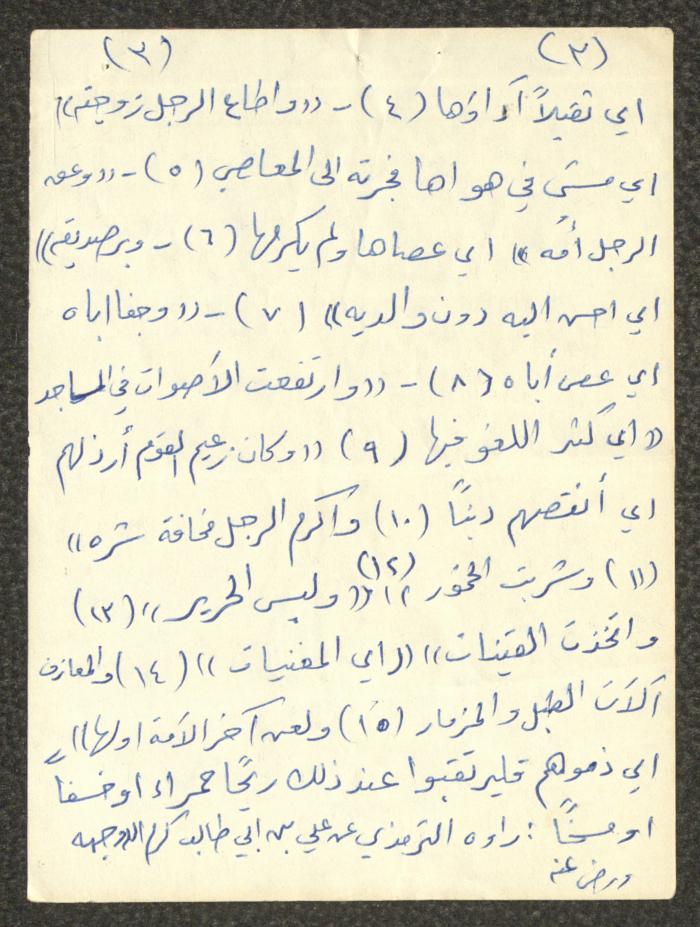 (٣) (٣)
اي ثقيلاً آداؤها (٤) - ((واطاع الرجل زوجته))
اي مشى في هواها فجرته الى المعاصي (٥) - ((وعق
الرجل أمه)) اي عصاها ولم يكرمها (٦) - وبر صديقه))
اي احسن اليه دون والديه)) (٧) - ((وجفا اباه
اي عصى أباه (٨) - ((وارتفعت الأصوات في المساجد
((اي كثر اللغو فيها (٩) ((وكان زعيم القوم أرذلهم
اي أنقصهم ديناً (١٠) واكرم الرجل مخافة شره))
(١١) وشربت الخمور)) (١٢) ((ولبس الحرير)) (١٣)
واتخذت القينات)) ((اي المغنيات)) (١٤) والمعازف
آلات الطبل والمزمار (١٥) ولعن آخر الأمة اولها))
اي ذموهم فليرتقبوا عند ذلك ريحًا حمراء او خسفا
او مسخًا : راوه الترمذي عن علي بن ابي طالب كرم الله وجهه
ورضي عنه